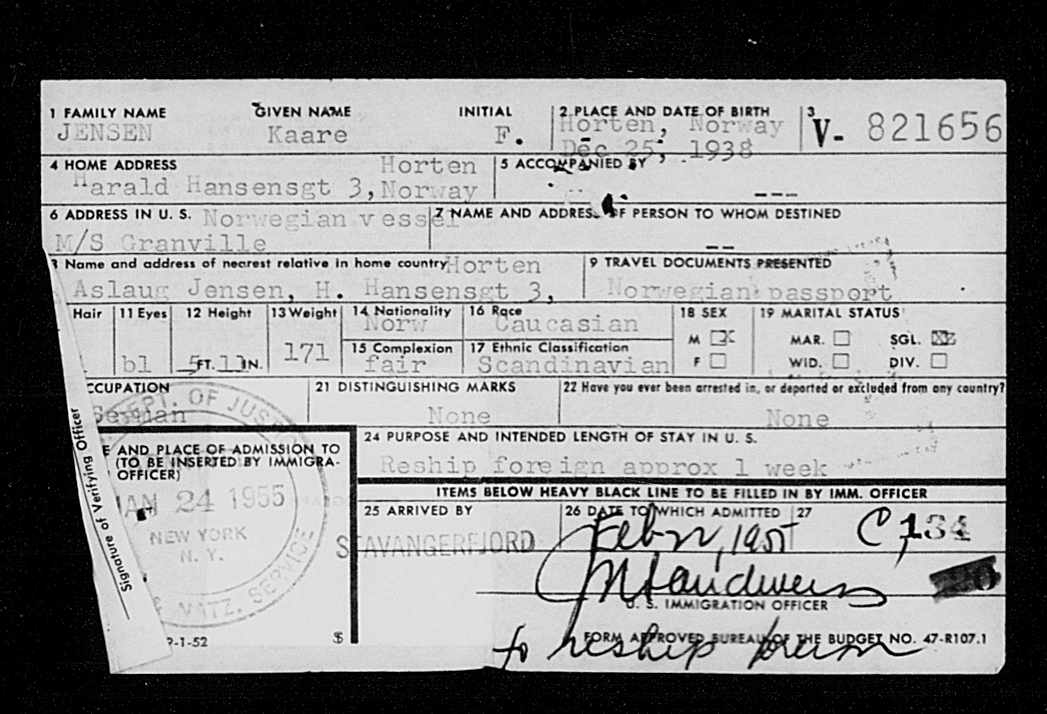 1 FAMILY NAME GIVEN NAME INITIAL 2 PLACE AND DATE OF BIRTH 3
JENSEN Kaare F. Horten, Norway V- 821656
Dec 25, 1938
4 HOME ADDRESS Horten 5 ACCOMPANIED BY
Harald Hansensgt 3, Norway ---
6 ADDRESS IN U. S. Norwegian vessel 7 NAME AND ADDRESS OF PERSON TO WHOM DESTINED
M/S Granville --
8 Name and address of nearest relative in home country Horten 9 TRAVEL DOCUMENTS PRESENTED
Aslaug Jensen, H. Hansensgt 3, Norwegian passport
Hair 11 Eyes 12 Height 13 Weight 14 Nationality 16 Race 18 SEX 19 MARITAL STATUS
Norw Caucasian M X MAR. SGL. XX
bl 5 FT. 11 IN. 171 15 Complexion 17 Ethnic Classification
fair Scandinavian F WID. DIV.
CCUPATION 21 DISTINGUISHING MARKS 22 Have you ever been arrested in, or deported or excluded from any country?
Seaman None None
E AND PLACE OF ADMISSION TO
(TO BE INSERTED BY IMMIGRA-
OFFICER)
24 PURPOSE AND INTENDED LENGTH OF STAY IN U. S.
Reship foreign approx 1 week
ITEMS BELOW HEAVY BLACK LINE TO BE FILLED IN BY IMM. OFFICER
25 ARRIVED BY 26 DATE TO WHICH ADMITTED 27
STAVANGERFJORD 1955 C, 134
U. S. IMMIGRATION OFFICER
FORM APPROVED BUREAU OF THE BUDGET NO. 47-R107.1
to reship foreign
DEPT. OF JUSTICE
JAN 24 1955
NEW YORK
N. Y.
& NATZ. SERVICE
Signature of Verifying Officer
9-1-52 $